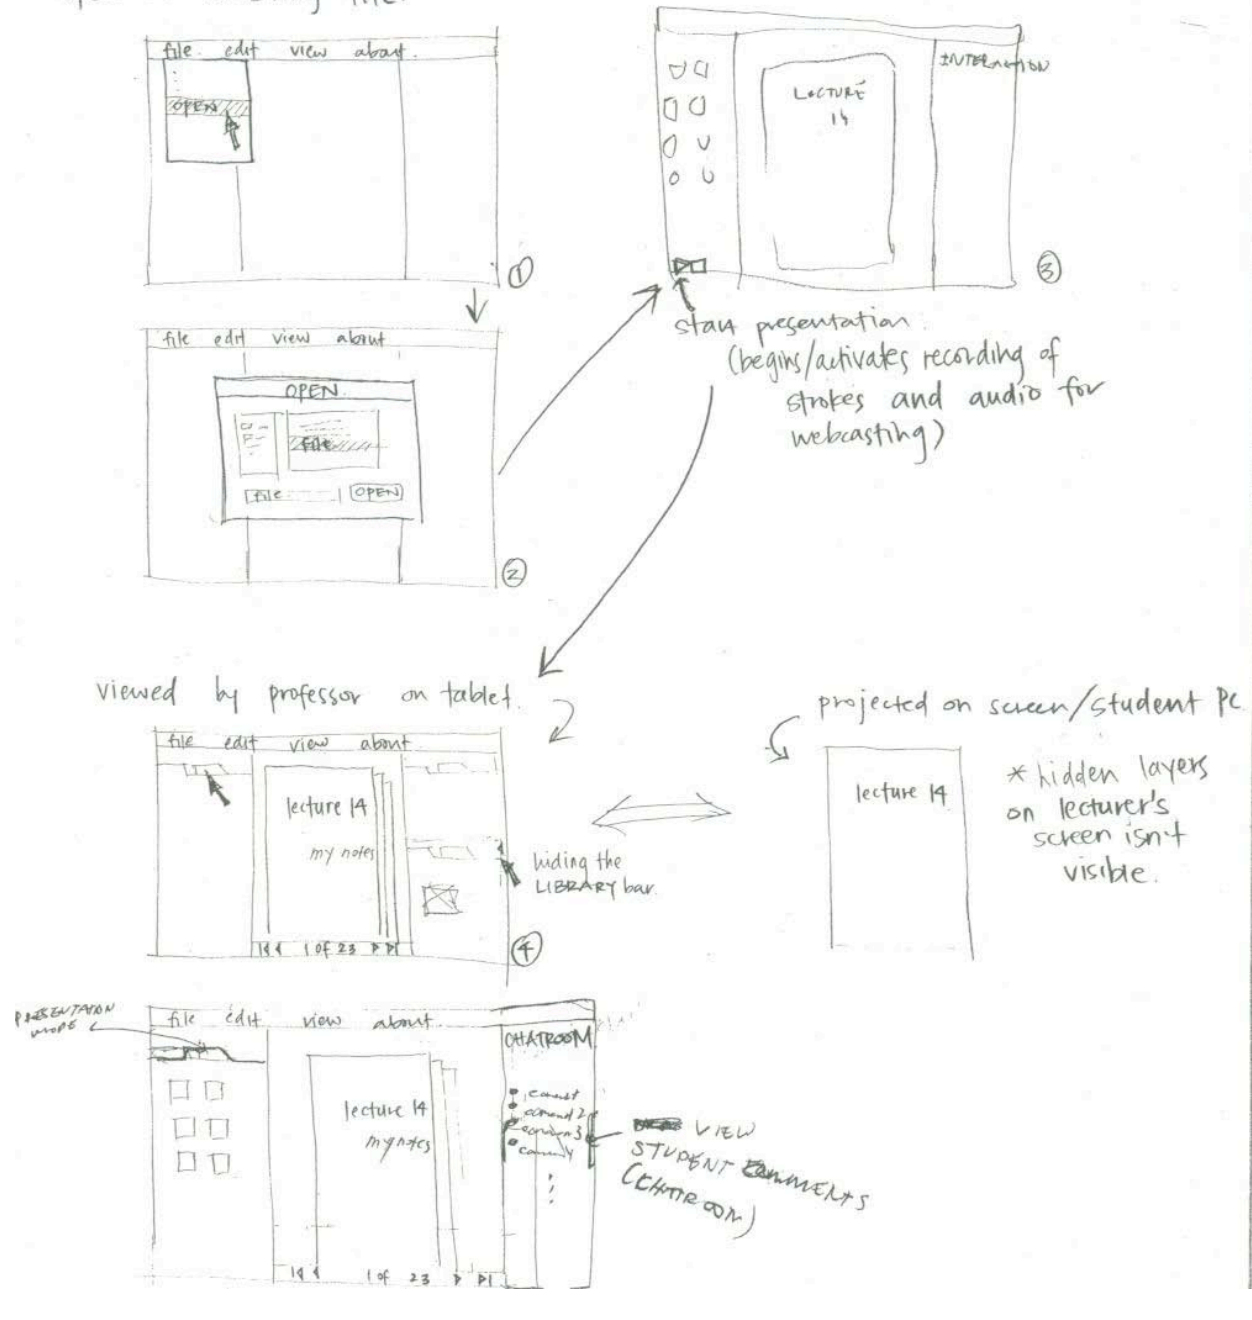 file edit view about
OPEN
①
file edit view about
OPEN
file
file OPEN
②
LECTURE
14
INTERACTION
③
start presentation
(begins/activates recording of
strokes and audio for
webcasting)
viewed by professor on tablet.
file edit view about
lecture 14
my notes
1 of 23
④
hiding the
LIBRARY bar.
projected on screen/student PC
lecture 14
* hidden layers
on lecturer's
screen isn't
visible.
PRESENTATION
MODE
file edit view about
lecture 14
my notes
1 of 23
CHATROOM
VIEW
STUDENT COMMENTS
(CHATROOM)